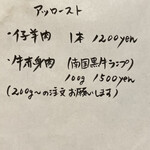 アッロースト
・仔羊肉 1本 1200yen
・牛赤身肉 (南国黒牛ランプ)
100g 1500yen
(200g〜の注文お願いします)